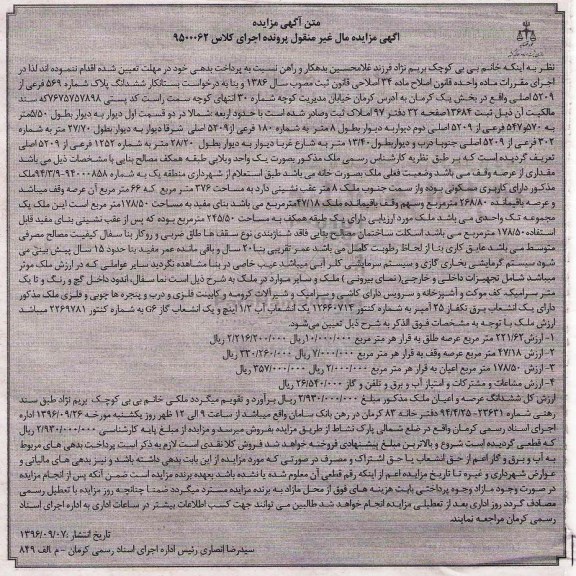 متن آگهی مزایده
آگهی مزایده مال غیر منقول پرونده اجرای کلاس ۹۵۰۰۰۶۲
نظر به اینکه خانم بی بی کوچک بریم نژاد فرزند غلامحسین بدهکار و راهن نسبت به پرداخت بدهی خود در مهلت تعیین شده اقدام ننموده اند لذا در
اجرای مقررات ماده واحده قانون اصلاح ماده ۳۴ اصلاحی قانون ثبت مصوب سال ۱۳۸۶ و بنا به درخواست بستانکار ششدانگ پلاک شماره ۵۶۹ فرعی از
۵۲۰۹ اصلی واقع در بخش یک کرمان به آدرس کرمان خیابان مدیریت کوچه شماره ۳۰ انتهای کوچه سمت راست کد پستی ۷۶۷۵۷۵۷۸۹۸ که سند
مالکیت آن ذیل ثبت ۱۳۶۸۴ صفحه ۳۲ دفتر ۹۷ املاک ثبت وصادر شده است با حدود اربعه :شمالا در دو قسمت اول دیوار به دیوار بطول ۵/۵۰متر
به ۵۷۰و۵۴۷ فرعی از ۵۲۰۹ اصلی دوم دیواربه دیوار بطول ۸متر به شماره ۱۸۰ فرعی از۵۲۰۹ اصلی شرقا دیوار به دیوار بطول ۲۷/۷۰ متر به شماره
۳۰۲ فرعی از ۵۲۰۹ اصلی جنوبا درب و دیواربطول ۱۳/۴۰ متر به شارع غربا دیوار به دیوار بطول ۲۸/۲۰ متر به شماره ۱۲۵۲ فرعی از ۵۲۰۹ اصلی
تعریف گردیده است که بر طبق نظریه کارشناس رسمی ملک مذکور بصورت یک واحد ویلایی طبقه همکف مصالح بنایی با مشخصات ذیل می باشد
مقداری از عرصه وقف می باشد وضعیت فعلی ملک بصورت خانه می باشد طبق استعلام از شهرداری منطقه یک به شماره ۹۴۰۰۰۸۵۸-۹۴/۳/۹ملک
مذکور دارای کاربری مسکونی بوده واز سمت جنوب ملک ۸ متر عقب نشینی دارد به مساحت ۳۷۶ متر مربع که ۶۶ متر مربع آن عرصه وقف میباشد
و عرصه باقیمانده ۲۶۸/۸۰ مترمربع وسهم وقف باقیمانده ملک ۴۷/۱۸مترمربع می باشد بنای مفید به مساحت ۱۷۸/۵۰متر مربع است این ملک یک
مجموعه تک واحدی می باشد ملک مورد ارزیابی دارای یک طبقه همکف به مساحت ۲۴۵/۵۰ مترمربع بوده که پس از عقب نشینی بنای مفید قابل
استفاده ۱۷۸/۵۰ مترمربع می باشد اسکلت ساختمان مصالح بنایی فاقد شناژبندی نوع سقف ها طاق ضربی و روکار بنا سفال کیفیت مصالح مصرفی
متوسط می باشد عایق کاری بنا از لحاظ رطوبت کامل می باشد عمر تقریبی بنا۲۰ سال و باقی مانده عمر مفید بنا حدود ۱۵ سال پیش بینی می
شود سیستم گرمایشی بخاری گازی و سیستم سرمایشی کولر آبی میباشد عیب خاصی در بنا مشاهده نگردید سایر عواملی که در ارزش ملک موثر
میباشد شامل تجهیزات داخلی و خارجی( نمای بیرونی ) ملک و سایر موارد در ملک به شرح ذیل است نما سفال، اندود داخل گچ و رنگ و تا یک
متر سرامیک، کف موکت و آشپزخانه و سرویس دارای کاشی و سرامیک و شیرآلات کرومه و کابینت فلزی و درب و پنجره ها چوبی و فلزی ملک مذکور
دارای یک انشعاب برق تکفاز ۲۵ آمپر به شماره کنتور ۱۲۶۶۰۷۱۳ یک انشعاب آب ۱/۲ اینچ و یک انشعاب گاز G۴ به شماره کنتور ۲۲۶۹۷۸۱ میباشد
ارزش ملک با توجه به مشخصات فوق الذکر به شرح ذیل تعیین می‌شود.
۱- ارزش ۲۲۱/۶۲ متر مربع عرصه طلق به قرار هر متر مربع ۱۰/۰۰۰/۰۰۰ریال ۲/۲۱۶/۲۰۰/۰۰۰ ریال
۲- ارزش ۴۷/۱۸ متر مربع عرصه وقف به قرار هر متر مربع ۷/۰۰۰/۰۰۰ ریال ۳۳۰/۲۶۰/۰۰۰ ریال
۳- ارزش ۱۷۸/۵۰ متر مربع اعیان به قرار هر متر مربع ۲/۰۰۰/۰۰۰ ریال ۳۵۷/۰۰۰/۰۰۰ ریال
۴- ارزش مشاعات و مشترکات و امتیاز آب و برق و تلفن و گاز ۲۶/۵۴۰/۰۰۰ ریال
ارزش کل ششدانگ عرصه و اعیان ملک مذکور مبلغ ۲/۹۳۰/۰۰۰/۰۰۰ ریال برآورد و تقویم میگردد ملکی خانم بی بی کوچک بریم نژاد طبق سند
رهنی شماره ۲۳۶۳۱- ۹۴/۴/۲۵ دفتر خانه ۸۳ کرمان در رهن بانک سامان واقع میباشد از ساعت ۹ الی ۱۲ ظهر روز یکشنبه مورخه ۱۳۹۶/۰۹/۲۶ اداره
اجرای اسناد رسمی کرمان واقع در ضلع شمالی پارک نشاط از طریق مزایده بفروش میرسد و مزایده از مبلغ پایه کارشناسی ۲/۹۳۰/۰۰۰/۰۰۰ ریال
که قطعی گردیده است شروع و بالاترین مبلغ پیشنهادی فروخته خواهد شد فروش کلا نقدی است لازم به ذکر است پرداخت بدهی های مربوط
به آب و برق و گاز اعم از حق انشعاب یا حق اشتراک و مصرف در صورتی که مورد مزایده از این بابت بدهی داشته باشد و نیز بدهی های مالیاتی و
عوارض شهرداری و غیره تا تاریخ مزایده اعم از اینکه رقم قطعی آن معلوم شده یا نشده باشد بعهده برنده مزایده است ضمن آنکه پس از انجام مزایده
در صورت وجود مازاد وجوه پرداختی بابت هزینه های فوق از محل مازاد به برنده مزایده مسترد میگردد ضمنا چنانچه روز مزایده با تعطیل رسمی
مصادف گردد روز اداری بعد از تعطیلی مزایده انجام خواهد شد طالبین می توانند جهت کسب اطلاعات بیشتر در ساعات اداری به اداره اجرای اسناد
رسمی کرمان مراجعه نمایند
تاریخ انتشار :۱۳۹۶/۰۹/۰۷
سیدرضا انصاری رئیس اداره اجرای اسناد رسمی کرمان - م الف ۸۴۹